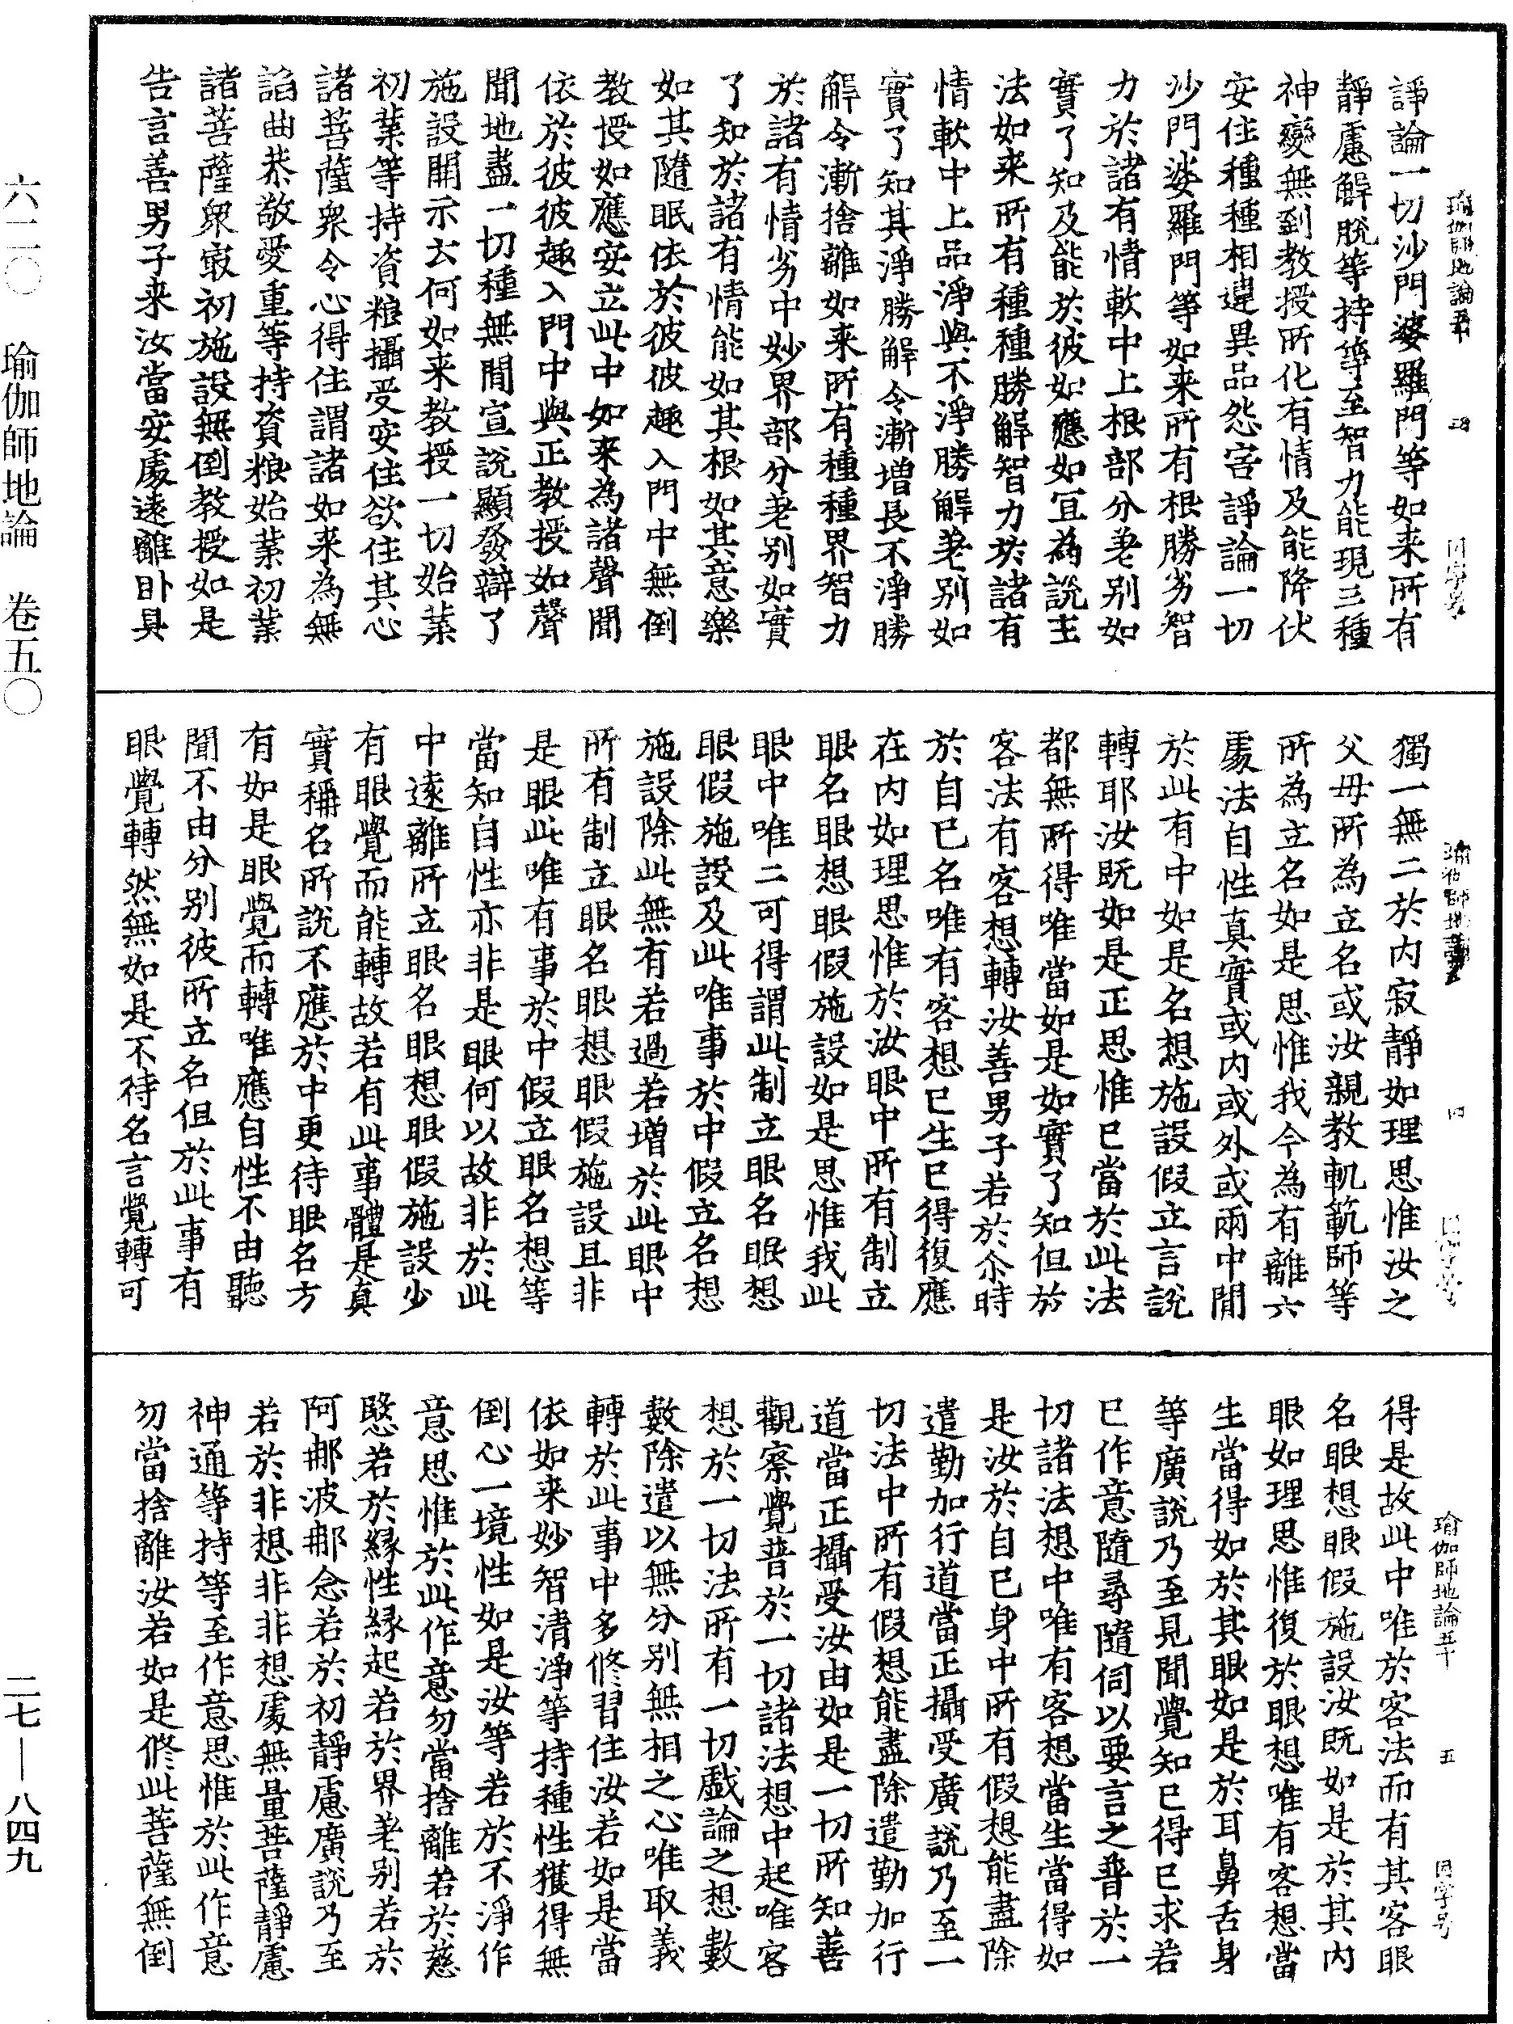 六二〇　瑜伽師地論　卷五〇
二七—八四九
諍論一切沙門婆羅門等如来所有
靜慮解脫等持等至智力能現三種
神變無到教授所化有情及能降伏
安住種種相違異品怨害諍論一切
沙門婆羅門等如来所有根勝劣智
力於諸有情軟中上根部分差别如
實了知及能於彼如應如宜為說主
法如来所有種種勝解智力於諸有
情軟中上品淨與不淨勝解差别如
實了知其淨勝解令漸增長不淨勝
解令漸捨離如来所有種種界智力
於諸有情劣中妙界部分差别如實
了知於諸有情能如其根如其意樂
如其隨眠依於彼彼趣入門中無倒
教授如應安立此中如来為諸聲聞
依於彼彼趣入門中與正教授如聲
聞地盡一切種無間宣說顯發辯了
施設開示云何如来教授一切始業
初業等持資粮攝受安住欲住其心
諸菩薩衆令心得住謂諸如来為無
諂曲恭敬愛重等持資粮始業初業
諸菩薩衆㝡初施設無倒教授如是
告言善男子来汝當安處遠離卧具
獨一無二於内寂靜如理思惟汝之
父母所為立名或汝親教軌範師等
所為立名如是思惟我今為有離六
處法自性真實或内或外或兩中間
於此有中如是名想施設假立言說
轉耶汝既如是正思惟已當於此法
都無所得唯當如是如實了知但於
客法有客想轉汝善男子若於尒時
於自己名唯有客想已生已得復應
在内如理思惟於汝眼中所有制立
眼名眼想眼假施設如是思惟我此
眼中唯二可得謂此制立眼名眼想
眼假施設及此唯事於中假立名想
施設除此無有若過若增於此眼中
所有制立眼名眼想眼假施設且非
是眼此唯有事於中假立眼名想等
當知自性亦非是眼何以故非於此
中遠離所立眼名眼想眼假施設少
有眼覺而能轉故若有此事體是真
實稱名所說不應於中更待眼名方
有如是眼覺而轉唯應自性不由聽
聞不由分别彼所立名但於此事有
眼覺轉然無如是不待名言覺轉可
得是故此中唯於客法而有其客眼
名眼想眼假施設汝既如是於其内
眼如理思惟復於眼想唯有客想當
生當得如於其眼如是於耳鼻舌身
等廣說乃至見聞覺知已得已求若
已作意隨尋隨伺以要言之普於一
切諸法想中唯有客想當生當得如
是汝於自己身中所有假想能盡除
遣勤加行道當正攝受廣說乃至一
切法中所有假想能盡除遣勤加行
道當正攝受汝由如是一切所知善
觀察覺普於一切諸法想中起唯客
想於一切法所有一切戲論之想數
數除遣以無分别無相之心唯取義
轉於此事中多修習住汝若如是當
依如来妙智清淨等持種性獲得無
倒心一境性如是汝等若於不淨作
意思惟於此作意勿當捨離若於慈
愍若於緣性緣起若於界差别若於
阿那波那念若於初靜慮廣說乃至
若於非想非非想處無量菩薩靜慮
神通等持等至作意思惟於此作意
勿當捨離汝若如是修此菩薩無倒
瑜伽師地論五十　五